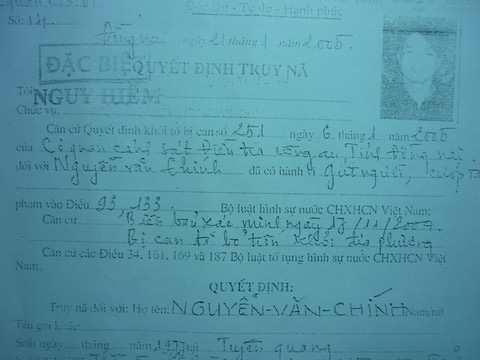 Độc lập - Tự do - Hạnh phúc
Số: 121
Đồng nai ngày 21 tháng 1 năm 2005
ĐẶC BIỆT QUYẾT ĐỊNH TRUY NÃ
NGUY HIỂM
Tôi
Chức vụ:
Căn cứ Quyết định khởi tố bị can số 251 ngày 6 tháng 1 năm 2005
của Cơ quan cảnh sát điều tra công an, Tỉnh Đồng nai.
đối với Nguyễn văn Chính đã có hành vi Giết người, cướp
phạm vào Điều 93, 133 Bộ luật hình sự nước CHXHCN Việt Nam;
Căn cứ Biên bản xác minh ngày 17/11/2004
Bị can đã bỏ trốn khỏi địa phương
Căn cứ các Điều 34, 161, 169 và 187 Bộ luật tố tụng hình sự nước CHXHCN Việt
Nam.
QUYẾT ĐỊNH:
Truy nã đối với: Họ tên: NGUYỄN-VĂN-CHÍNH Nam/nữ
Tên gọi khác:
Sinh ngày tháng năm 1977 tại Tuyên quang